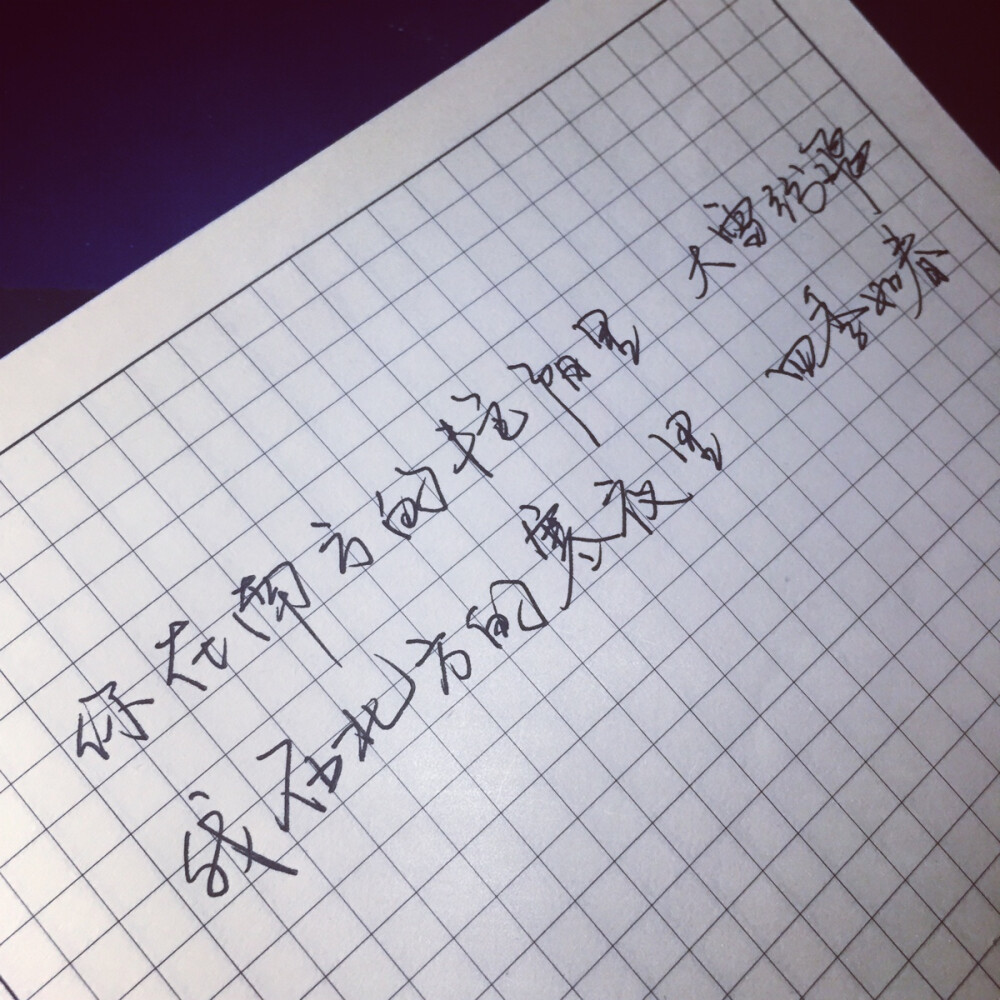 你在南方的艳阳里 大雪纷
我在北方的寒夜里 四季如春